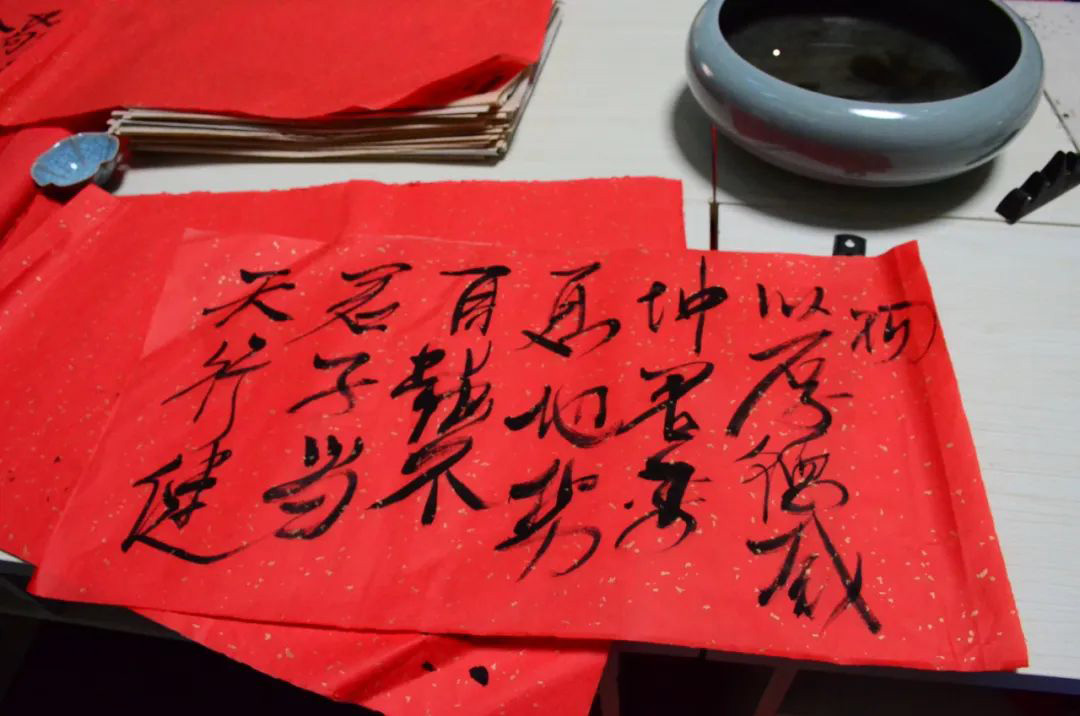 天行健
君子当
自强不
息地势
坤君
以厚德载
物